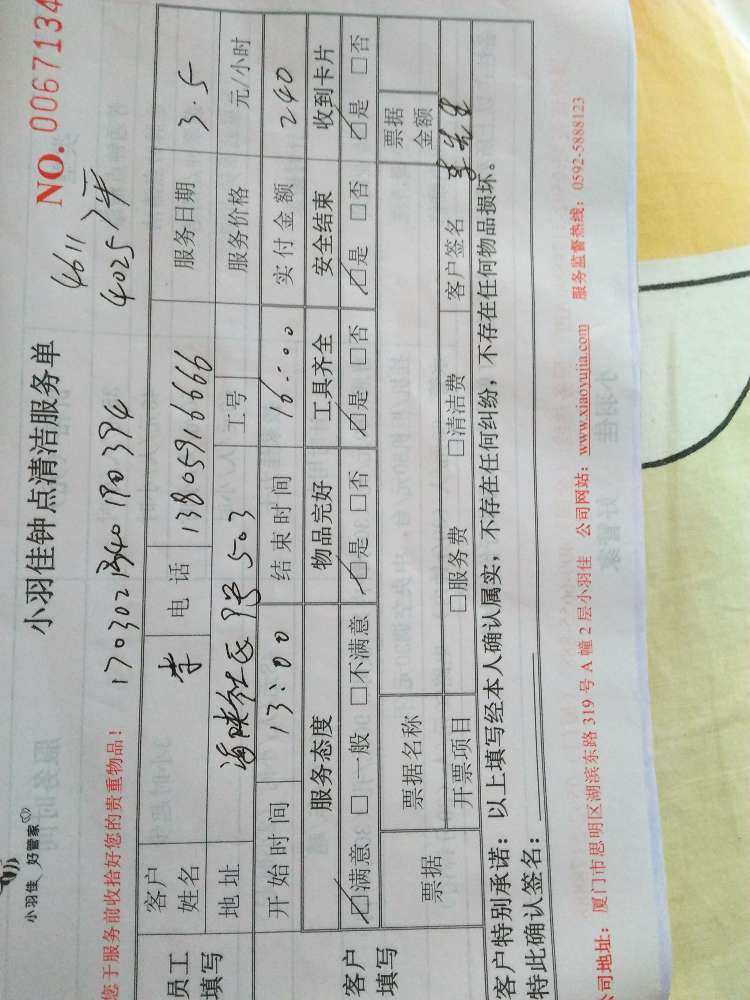 小羽佳 好管家
小羽佳钟点清洁服务单
NO. 0067134
您于服务前收拾好您的贵重物品!
4611
4025
员工填写
客户姓名 李 电话 13805916666 服务日期 3.5
地址 海峡社区 503 工号 服务价格 元/小时
客户填写
开始时间 13:00 结束时间 16:00 实付金额 240
服务态度 物品完好 工具齐全 安全结束 收到卡片
☑满意 □一般 □不满意 ☑是 □否 ☑是 □否 ☑是 □否 ☑是 □否
票据 票据名称 票据金额
开票项目 □服务费 □清洁费 客户签名 李先生
客户特别承诺：以上填写经本人确认属实，不存在任何纠纷，不存在任何物品损坏。
特此确认签名：
公司地址：厦门市思明区湖滨东路 319 号 A 幢 2 层小羽佳 公司网站：www.xiaoyujia.com 服务监督热线：0592-5888123